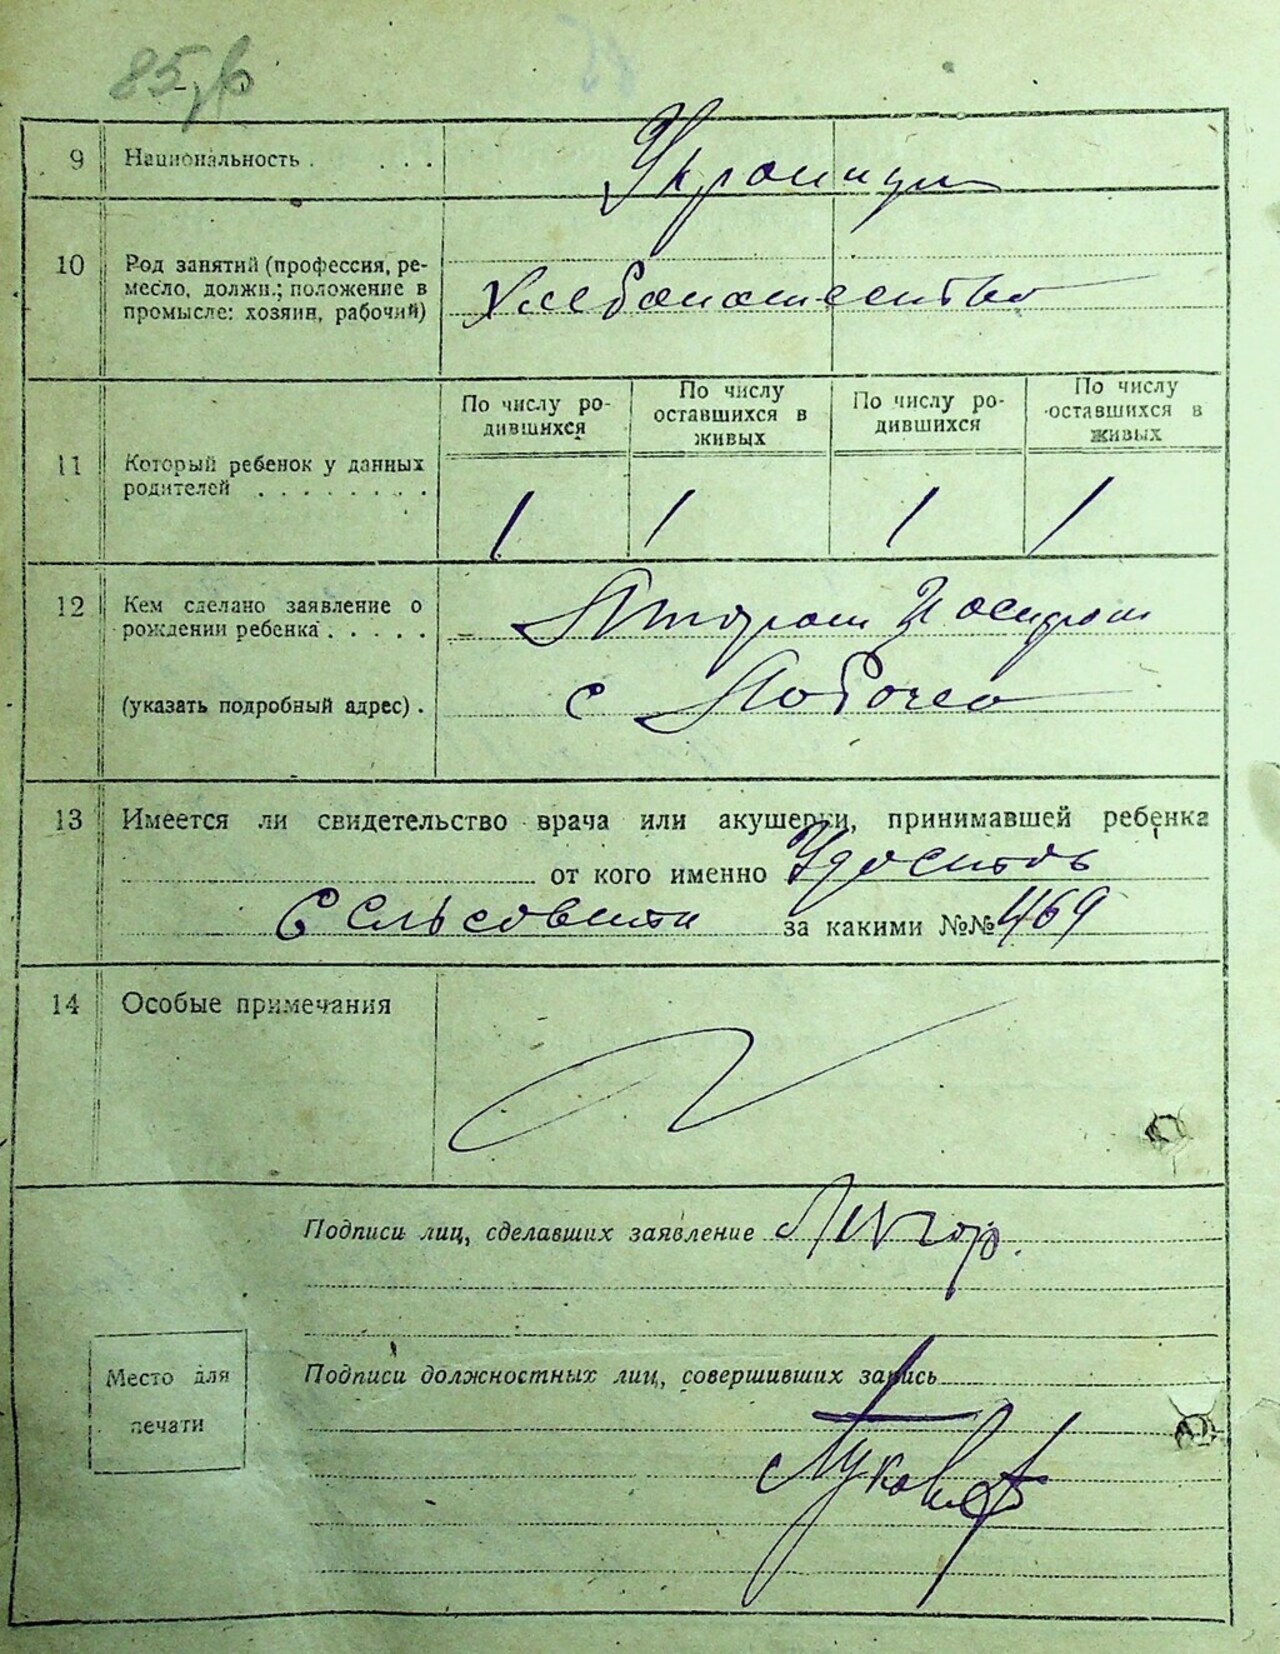 85
9 Национальность . . . .
Украинцы
10 Род занятий (профессия, ре-
месло, должн.; положение в
промысле: хозяин, рабочий)
Хлебопашество
По числу ро-
дившихся
По числу
оставшихся в
живых
По числу ро-
дившихся
По числу
оставшихся в
живых
11 Который ребенок у данных
родителей . . . . . . . .
1 1 1 1
12 Кем сделано заявление о
рождении ребенка . . . . .
(указать подробный адрес) .
с
13 Имеется ли свидетельство врача или акушерки, принимавшей ребенка
от кого именно Удостов
Сельсовета за какими №№ 469
14 Особые примечания
Подписи лиц, сделавших заявление
Место для
печати
Подписи должностных лиц, совершивших запись